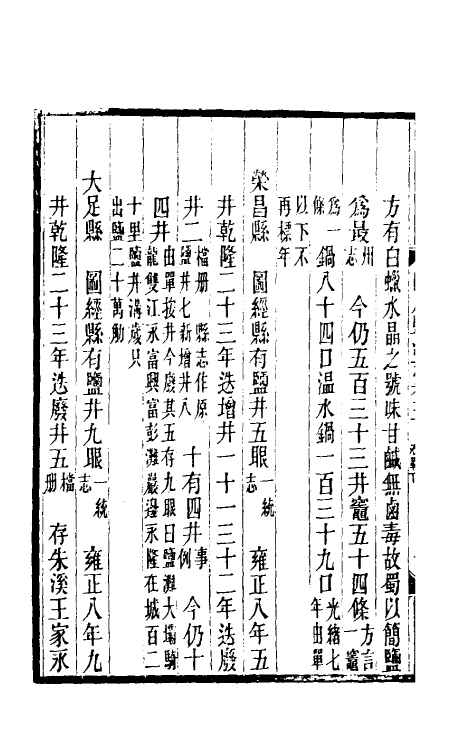 方有白蠟水晶之號味甘鹹無鹵毒故蜀以簡鹽
爲最州志 今仍五百三十三井竈五十四條方言一竈
爲一條鍋八十四口温水鍋一百三十九口光緒七年由單
以下不再標年
榮昌縣 圖經縣有鹽井五眼一統志 雍正八年五
井乾隆二十三年迭增井一十一三十二年迭廢
井二檔册 縣志作原鹽井七新增井八 十有四井事例 今仍十
四井由單按井今廢其五存九眼曰鹽灘大壩騎龍雙江永富興富彭灘嚴邊永隆在城百二
十里鹽井溝歲只出鹽二十萬觔
大足縣 圖經縣有鹽井九眼一統志 雍正八年九
井乾隆二十三年迭廢井五檔册 存朱溪王家永